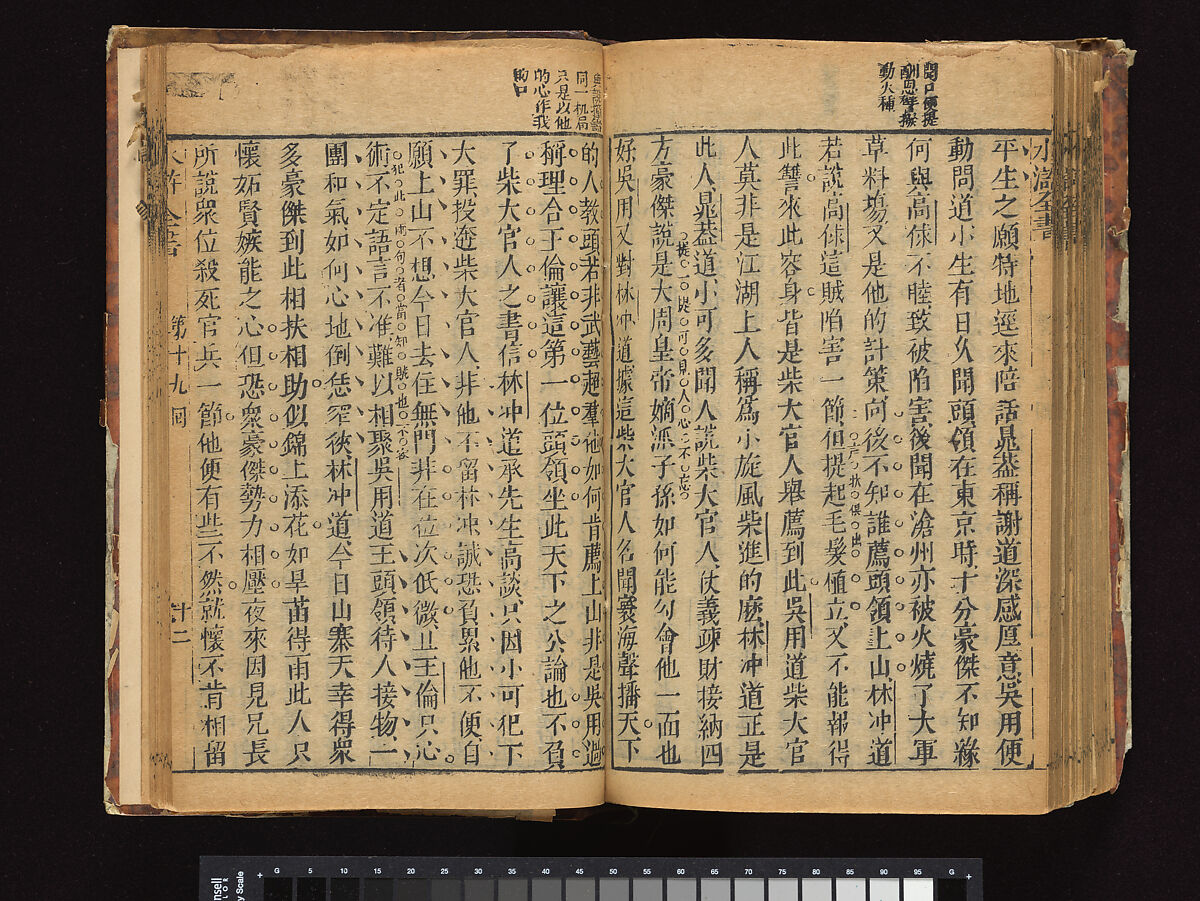 聞口便提
酬恩釋撥
動火種
水滸全書
平生之願特地逕來陪話晁蓋稱謝道深感厚意吳用便
動問道小生有日久聞頭領在東京時十分豪傑不知緣
何與高俅不睦致被陷害後聞在滄州亦被火燒了大軍
草料場又是他的計策向後不知誰薦頭領上山林冲道
若說高俅這賊陷害一節但提起毛髮植立又不能報得
此讐來此容身皆是柴大官人舉薦到此吳用道柴大官
人莫非是江湖上人稱爲小旋風柴進的麽林冲道正是
此人晁蓋道小可多聞人說柴大官人仗義疎財接納四
方豪傑說是大周皇帝嫡派子孫如何能勾會他一面也
好吳用又對林冲道據這柴大官人名聞寰海聲播天下
同一机局
只是以他
的心作我
的口
的人教頭若非武藝超羣他如何肯薦上山非是吳用過
稱理合王倫讓這第一位頭領坐此天下之公論也不負
了柴大官人之書信林冲道承先生高談只因小可犯下
大罪投逩柴大官人非他不留林冲誠恐負累他不便自
願上山不想今日去住無門非在位次低微且王倫只心
犯此兩句者當知賊也不容
術不定語言不准難以相聚吳用道王頭領待人接物一
團和氣如何心地倒恁窄狹林冲道今日山寨天幸得衆
多豪傑到此相扶相助似錦上添花如旱苗得雨此人只
懷妬賢嫉能之心但恐衆豪傑勢力相壓夜來因見兄長
所說衆位殺死官兵一節他便有些不然就懷不肯相留
第十九回
十二